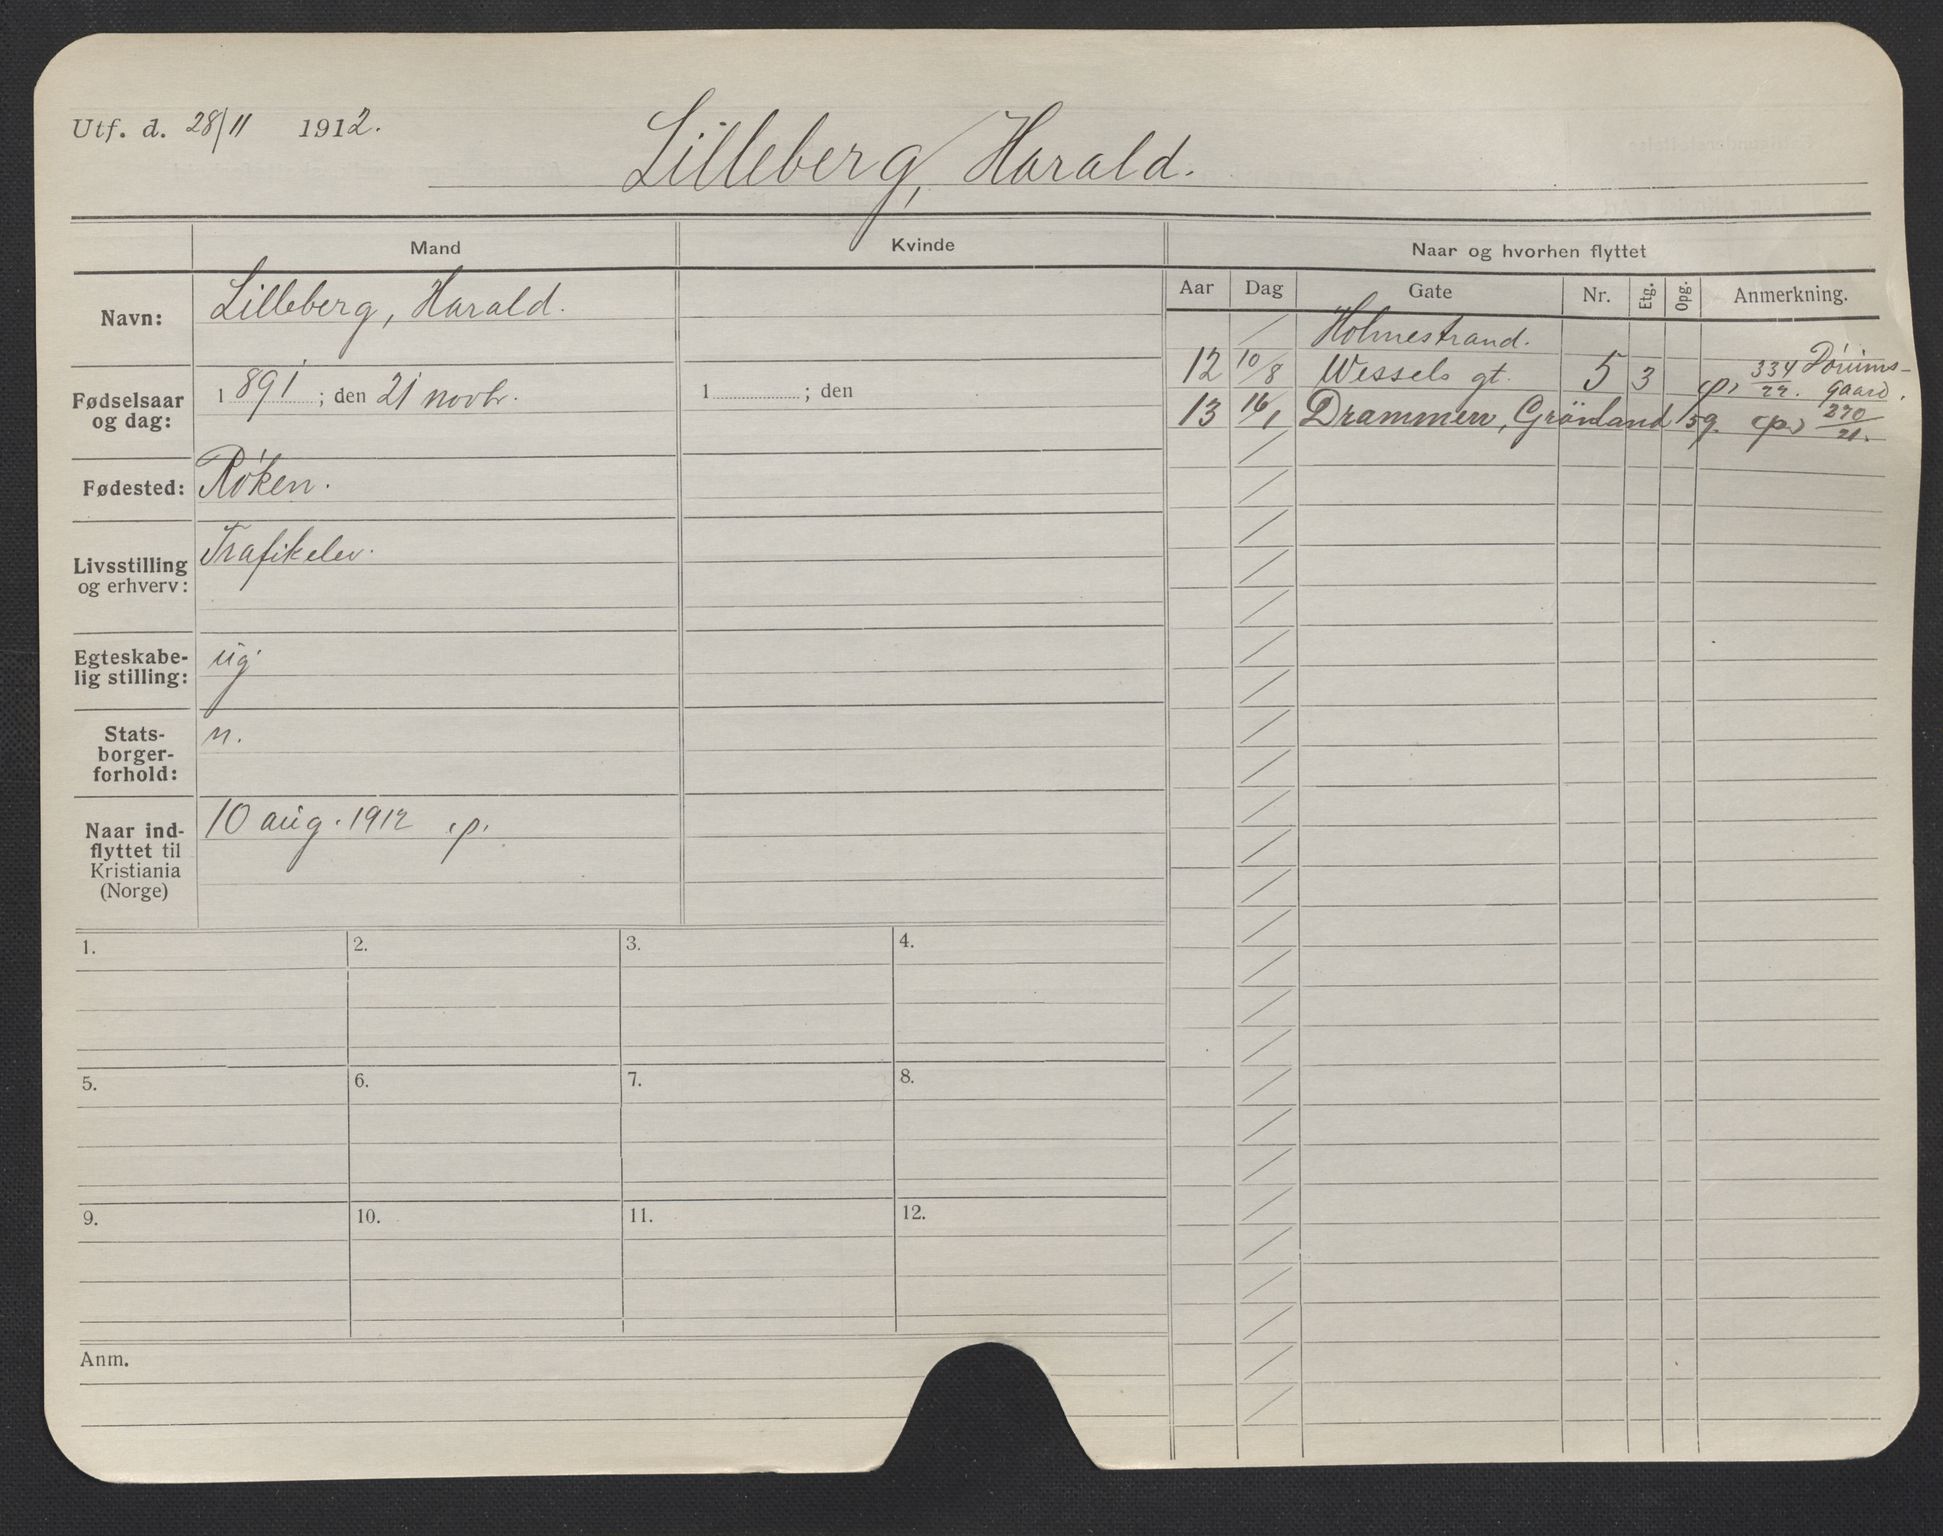 Utf. d. 28/11 1912.
Lilleberg, Harald.
Mand
Kvinde
Naar og hvorhen flyttet
Navn:
Lilleberg, Harald.
Fødselsaar
og dag:
1891; den 21 novbr.
1 ; den
Fødested:
Røken.
Livsstilling
og erhverv:
Trafikelev.
Egteskabe-
lig stilling:
ug
Stats-
borger-
forhold:
n.
Naar ind-
flyttet til
Kristiania
(Norge)
10 aug. 1912 p.
Aar Dag Gate Nr. Etg. Opg. Anmerkning.
Holmestrand.
12 10/8 Wessels gt. 5 3 p, 334/22. Dörums-
gaard.
13 16/1 Drammen, Grönland 159. p. 270/21.
1. 2. 3. 4.
5. 6. 7. 8.
9. 10. 11. 12.
Anm.